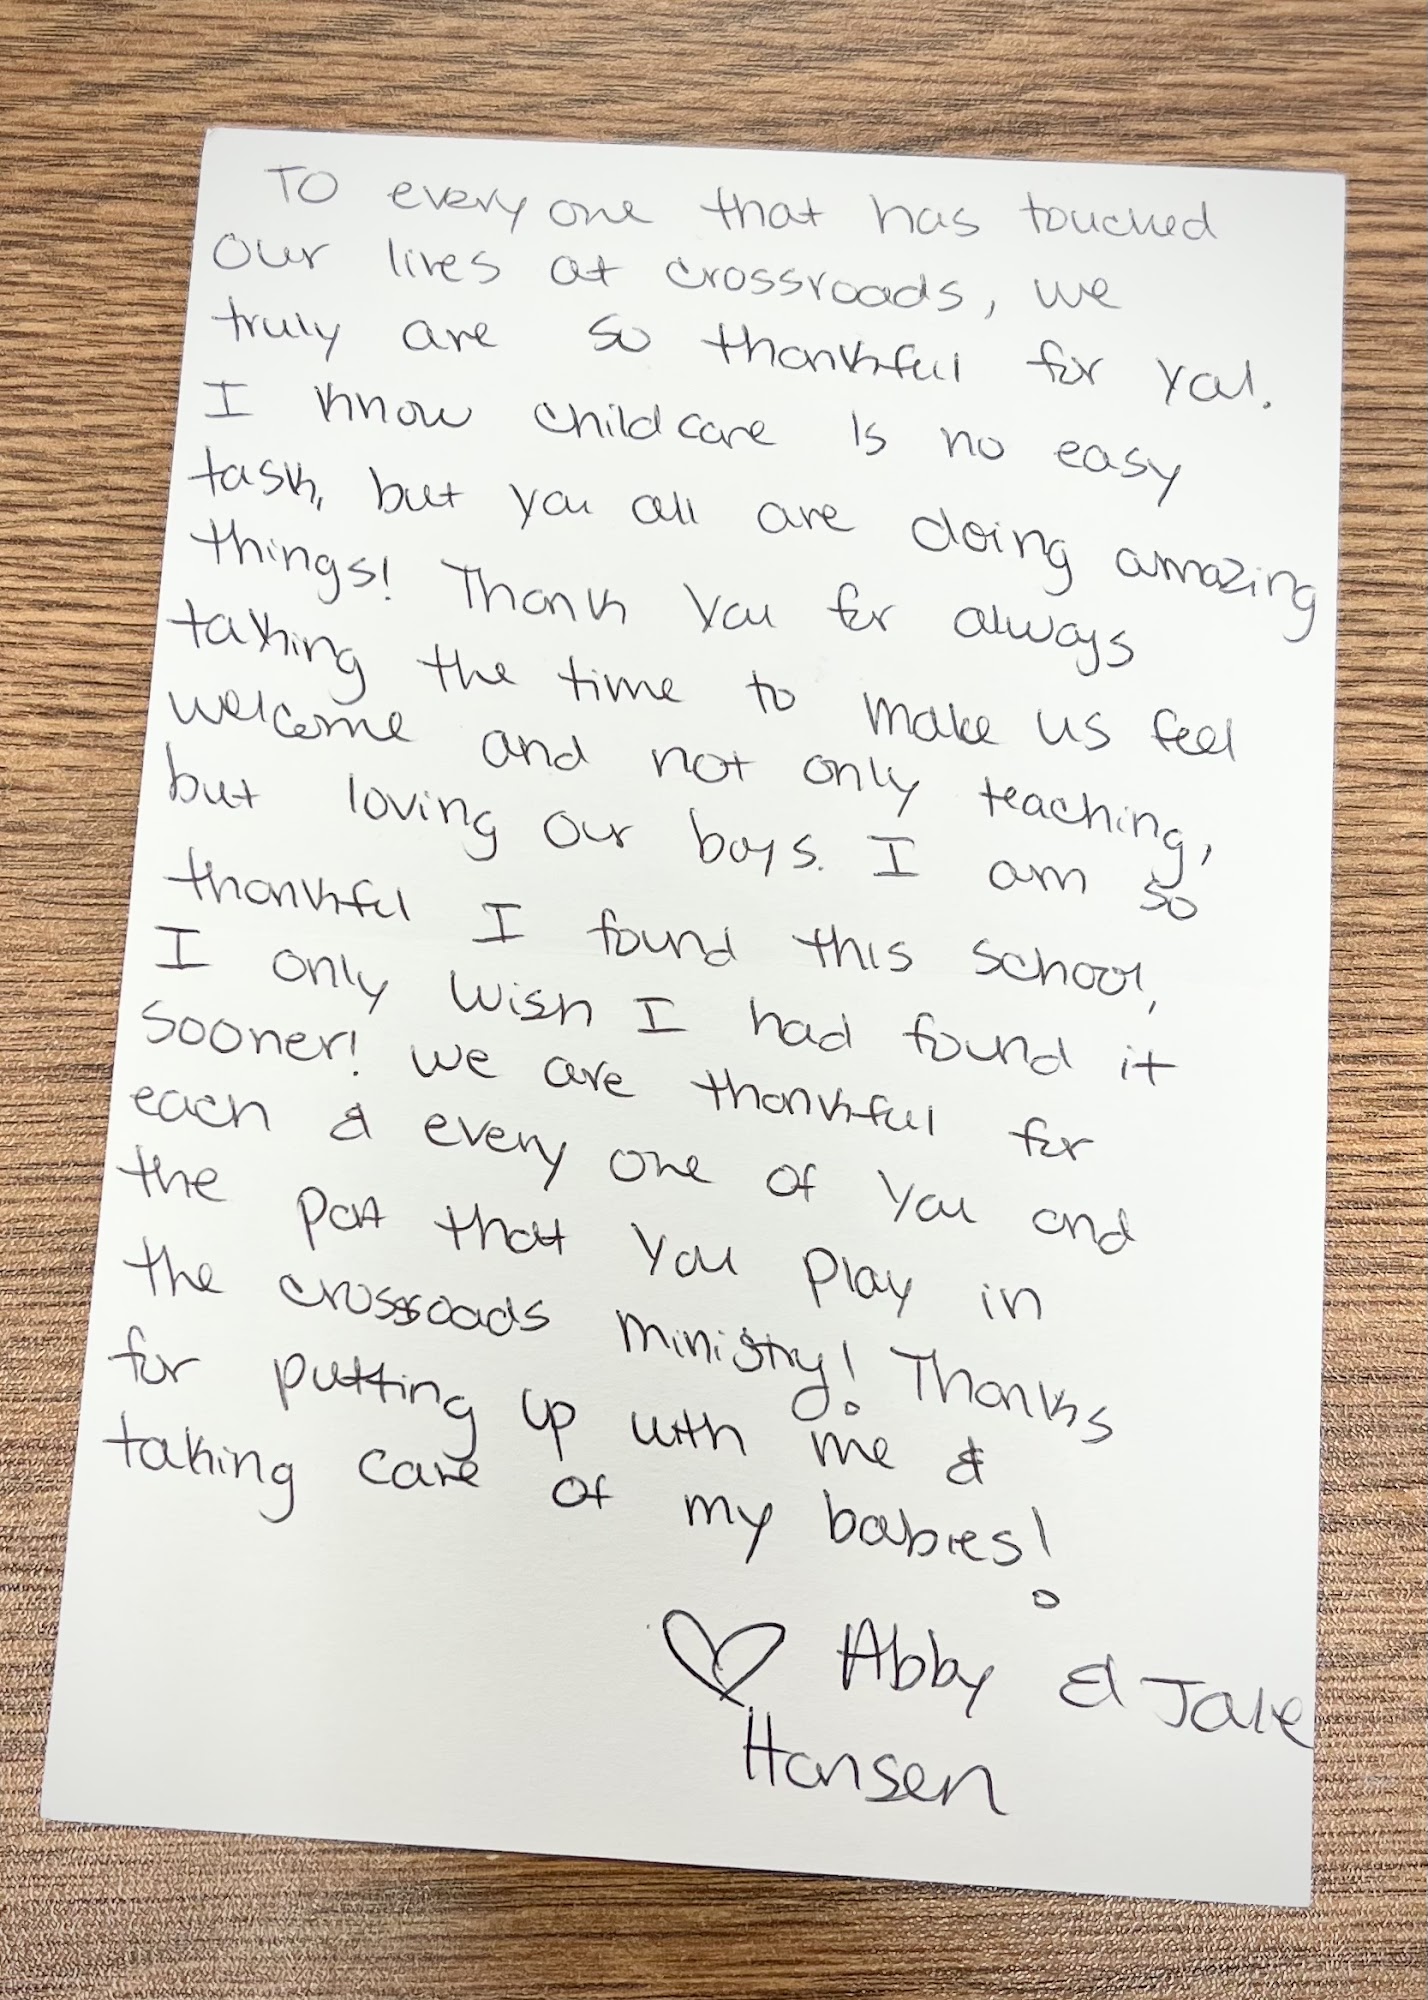 To everyone that has touched
our lives at crossroads, we
truly are so thankful for you.
I know childcare is no easy
task, but you all are doing amazing
things! Thank you for always
taking the time to make us feel
welcome and not only teaching,
but loving our boys. I am so
thankful I found this school,
I only wish I had found it
sooner! we are thankful for
each & every one of you and
the part that you play in
the crossroads ministry! Thanks
for putting up with me &
taking care of my babies!
♡ Abby & Jake
Hansen